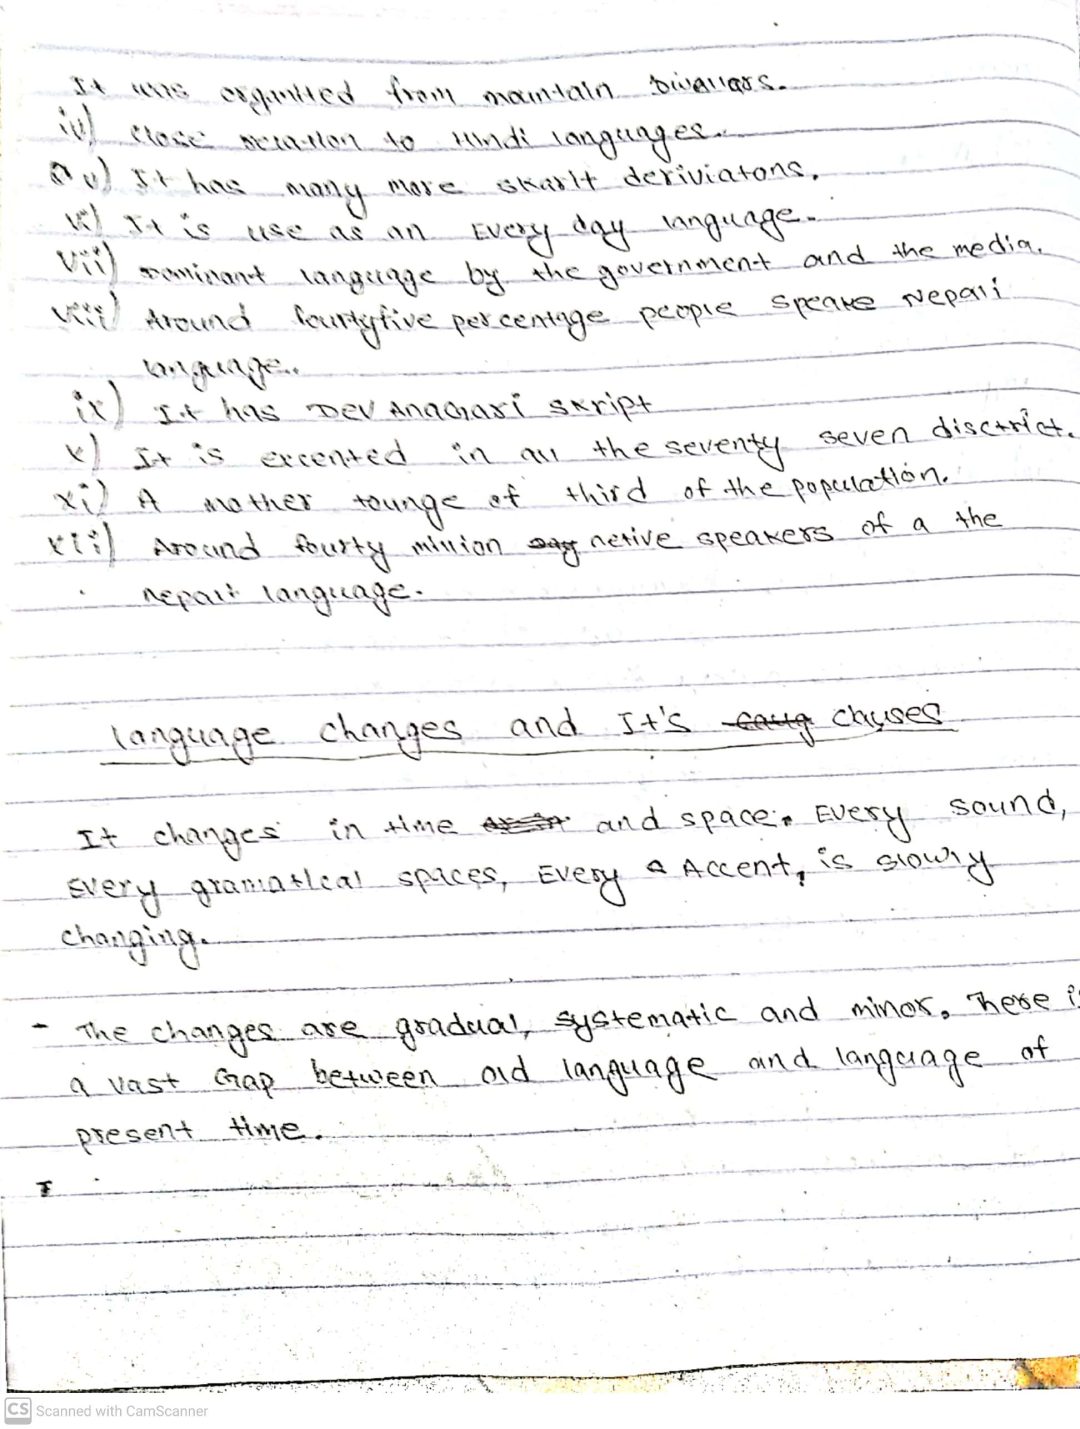 It was orgnitted from maintain Divallars.
iv) Close relation to Hindi languages.
v) It has many more skarit deriviatons.
vi) It is use as an Every day language.
vii) Dominant language by the government and the media.
viii) Around fourtyfive percentage people speake Nepali
language.
ix) It has Dev Anagari skript
x) It is excented in all the seventy seven disctrict.
xi) A mother tounge of third of the population.
xii) Around fourty million netive speakers of a the
nepali language.
language changes and It's causes
It changes in time and space. Every sound,
Every gramatical spaces, Every Accent, is slowly
changing.
- The changes are gradual, systematic and minor. There is
a vast Gap between old language and language of
present time.
I
CS Scanned with CamScanner